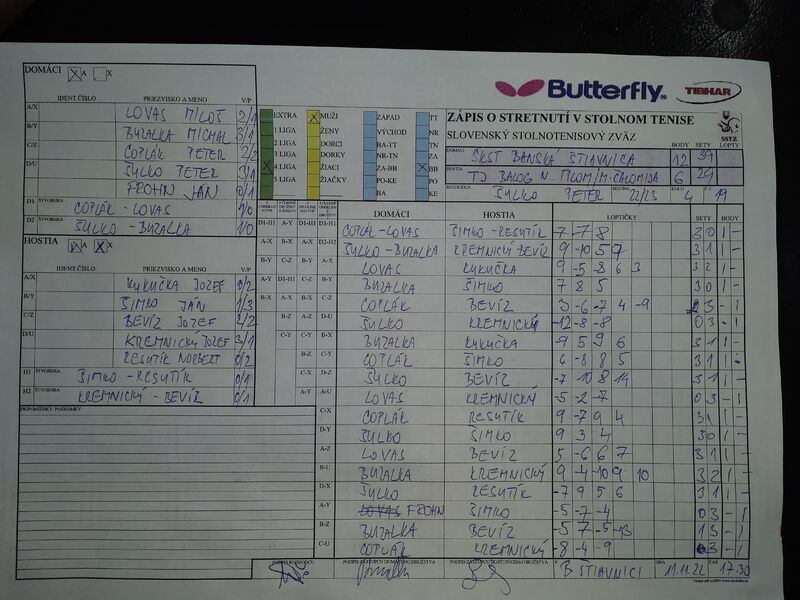 DOMÁCI X A X
Butterfly® TIBHAR
IDENT.ČÍSLO PRIEZVISKO A MENO V/P
A/X LOVAS MILOŠ 2/1
B/Y BUZALKA MICHAL 3/1
C/Z COPLÁK PETER 2/2
D/U ŠULKO PETER 3/1
FROHN JÁN 0/1
D1 ŠTVORHRA COPLÁK - LOVAS 1/0
D2 ŠTVORHRA ŠULKO - BUZALKA 1/0
EXTRA X MUŽI ZÁPAD TT
1 LIGA ŽENY VÝCHOD NR
2 LIGA DORCI BA-TT TN
3 LIGA DORKY NR-TN ZA
X 4 LIGA ŽIACI ZA-BB X BB
5 LIGA ŽIAČKY PO-KE PO
BA KE
ZÁPIS O STRETNUTÍ V STOLNOM TENISE
SLOVENSKÝ STOLNOTENISOVÝ ZVÄZ SSTZ
BODY SETY LOPTY
DOMÁCI SKST BANSKÁ ŠTIAVNICA 12 39
HOSTIA TJ BALOG N. IPLOM/M. ČALOMIJA 6 24
ROZHODCA ŠULKO PETER SEZÓNA 22/23 KOLO 4 Č.Z. 19
HOSTIA A X X
IDENT.ČÍSLO PRIEZVISKO A MENO V/P
A/X KUKUČKA JOZEF 0/2
B/Y ŠIMKO JÁN 1/3
C/Z BEVÍZ JOZEF 2/2
D/U KREMNICKÝ JOZEF 3/1
RESUTÍK NORBERT 0/2
H1 ŠTVORHRA ŠIMKO - RESUTÍK 0/1
H2 ŠTVORHRA KREMNICKÝ - BEVÍZ 0/1
PRIPOMIENKY, POZNÁMKY
DOMÁCI HOSTIA LOPTIČKY SETY BODY
D1-H1 A-Y D1-H1 D1-H1 COPLÁK - LOVAS ŠIMKO - RESUTÍK 7 7 8 3 0 1 -
A-X B-X A-X D2-H2 ŠULKO - BUZALKA KREMNICKÝ BEVÍZ 9 -10 5 7 3 1 1 -
B-Y C-Z A-X LOVAS KUKUČKA 9 -5 -8 6 3 3 2 1 -
A-Y D1-H1 C-Z B-Y BUZALKA ŠIMKO 7 8 5 3 0 1 -
B-X A-X B-X C-Z COPLÁK BEVÍZ 3 -6 -7 4 -9 2 3 - 1
B-Z A-Z D-U ŠULKO KREMNICKÝ -12 -8 -8 0 3 - 1
C-Y B-X BUZALKA KUKUČKA -9 5 9 6 3 1 1 -
C-Y COPLÁK ŠIMKO 6 -8 8 5 3 1 1
D-Z ŠULKO BEVÍZ -7 10 8 14 3 1 1 -
A-Y A-U LOVAS KREMNICKÝ -5 -2 -7 0 3 - 1
C-X COPLÁK RESUTÍK 9 -7 9 4 3 1 1 -
D-Y ŠULKO ŠIMKO 9 3 4 3 0 1 -
A-Z LOVAS BEVÍZ 5 -6 6 7 3 1 1 -
B-U BUZALKA KREMNICKÝ 9 -4 -10 9 10 3 2 1 -
D-X ŠULKO RESUTÍK -7 9 5 6 3 1 1 -
A-Y LOVAS FROHN ŠIMKO -5 -7 -4 0 3 - 1
B-Z BUZALKA BEVÍZ -5 7 -5 -13 1 3 - 1
C-U COPLÁK KREMNICKÝ -8 -4 -9 0 3 - 1
PODPIS ROZHODCU PODPIS ZÁSTUPCU DOMÁCEHO DRUŽSTVA PODPIS ZÁSTUPCU HOSŤUJÚCEHO DRUŽSTVA V B. ŠTIAVNICI DŇA 11.11.22 ČAS 17.30